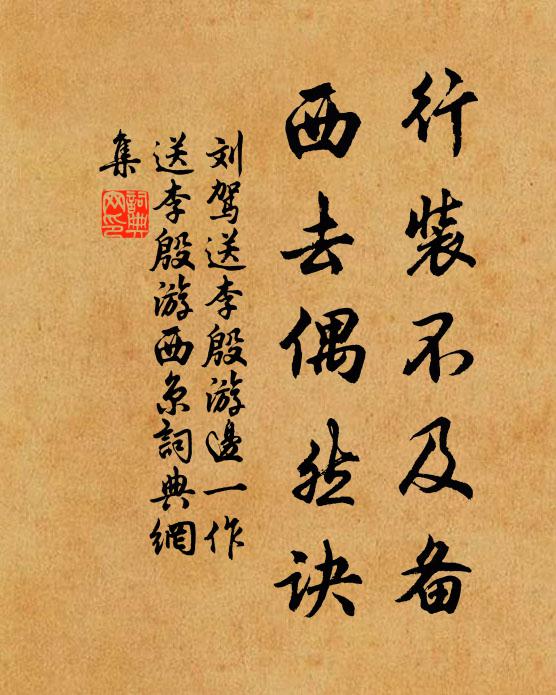 行裝不及备
西去偶然诀
刘驾送李殷游邊一作
送李殷游西京詞典網
集
詞典
网印